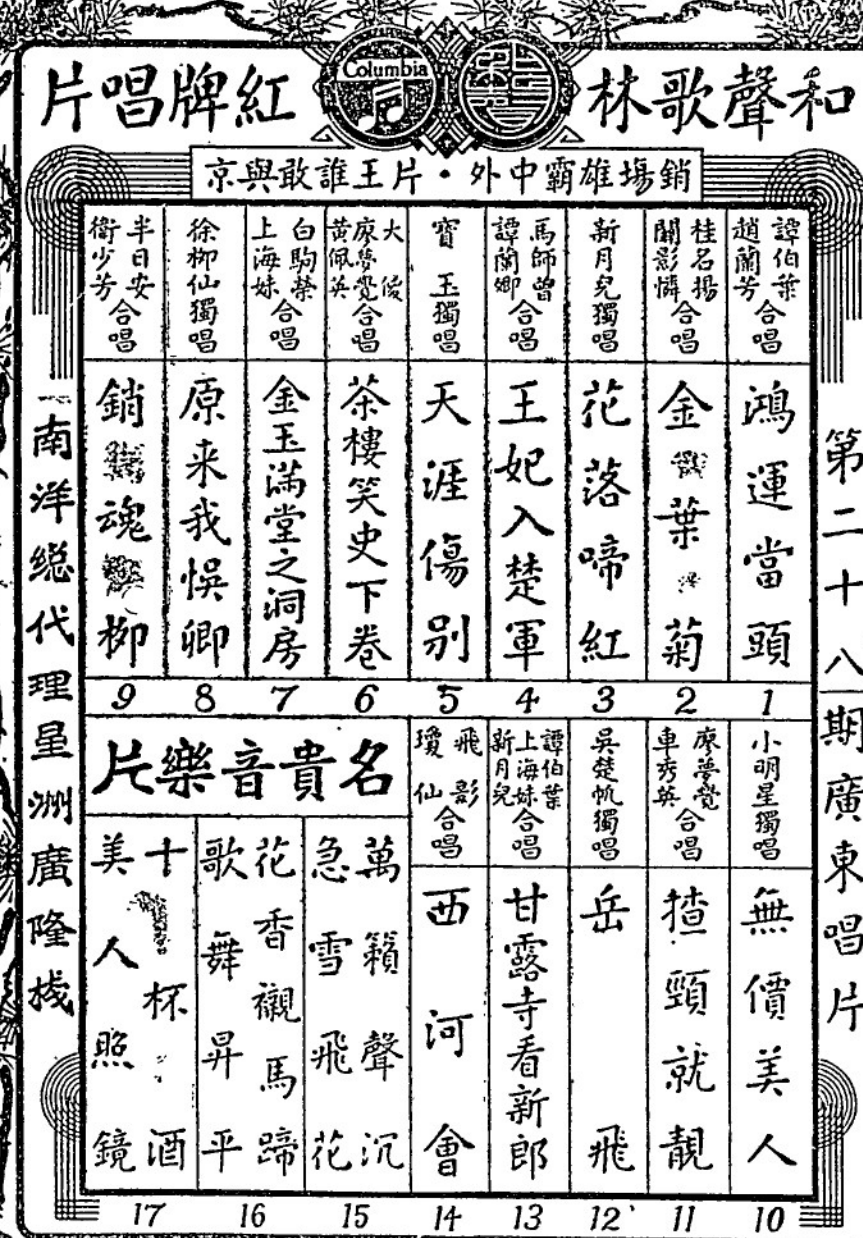 和聲歌林
Columbia
紅牌唱片
銷塲雄霸中外・片王誰敢與京
第二十八期廣東唱片
譚伯葉
趙蘭芳
合唱
鴻運當頭
1
桂名揚
關影憐
合唱
金葉菊
2
新月兒獨唱
花落啼紅
3
馬師曾
譚蘭卿
合唱
王妃入楚軍
4
寶玉獨唱
天涯傷别
5
大傻
廖夢覺
黃佩英
合唱
茶樓笑史下卷
6
白駒榮
上海妹
合唱
金玉满堂之洞房
7
徐柳仙獨唱
原来我悞卿
8
半日安
衛少芳
合唱
銷魂柳
9
小明星獨唱
無價美人
10
廖夢覺
車秀英
合唱
揸頸就靚
11
吳楚帆獨唱
岳飛
12
譚伯葉
上海妹
新月兒
合唱
甘露寺看新郎
13
飛影
瓊仙
合唱
西河會
14
名貴音樂片
萬籟聲沉
急雪飛花
15
花香襯馬蹄
歌舞昇平
16
十杯酒
美人照鏡
17
南洋總代理星洲廣隆棧